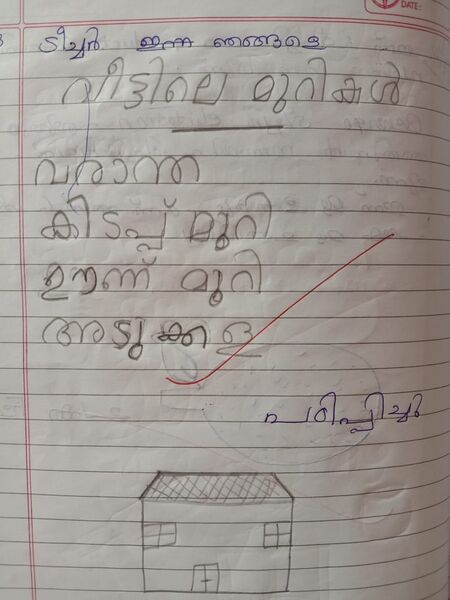 DATE:
ടീച്ചർ ഇന്ന് ഞങ്ങളെ
വീട്ടിലെ മുറികൾ
വരാന്ത
കിടപ്പ് മുറി
ഊണ് മുറി
അടുക്കള
പഠിപ്പിച്ചു